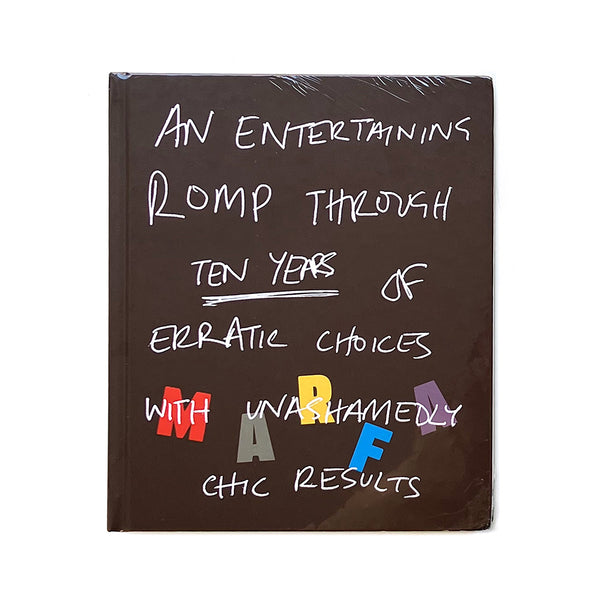 AN ENTERTAINING
ROMP THROUGH
TEN YEARS OF
ERRATIC CHOICES
WITH UNASHAMEDLY
MARFA
CHIC RESULTS